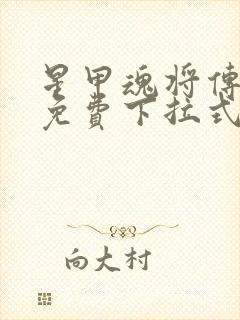 星甲魂将傳
免費下拉式
向大村